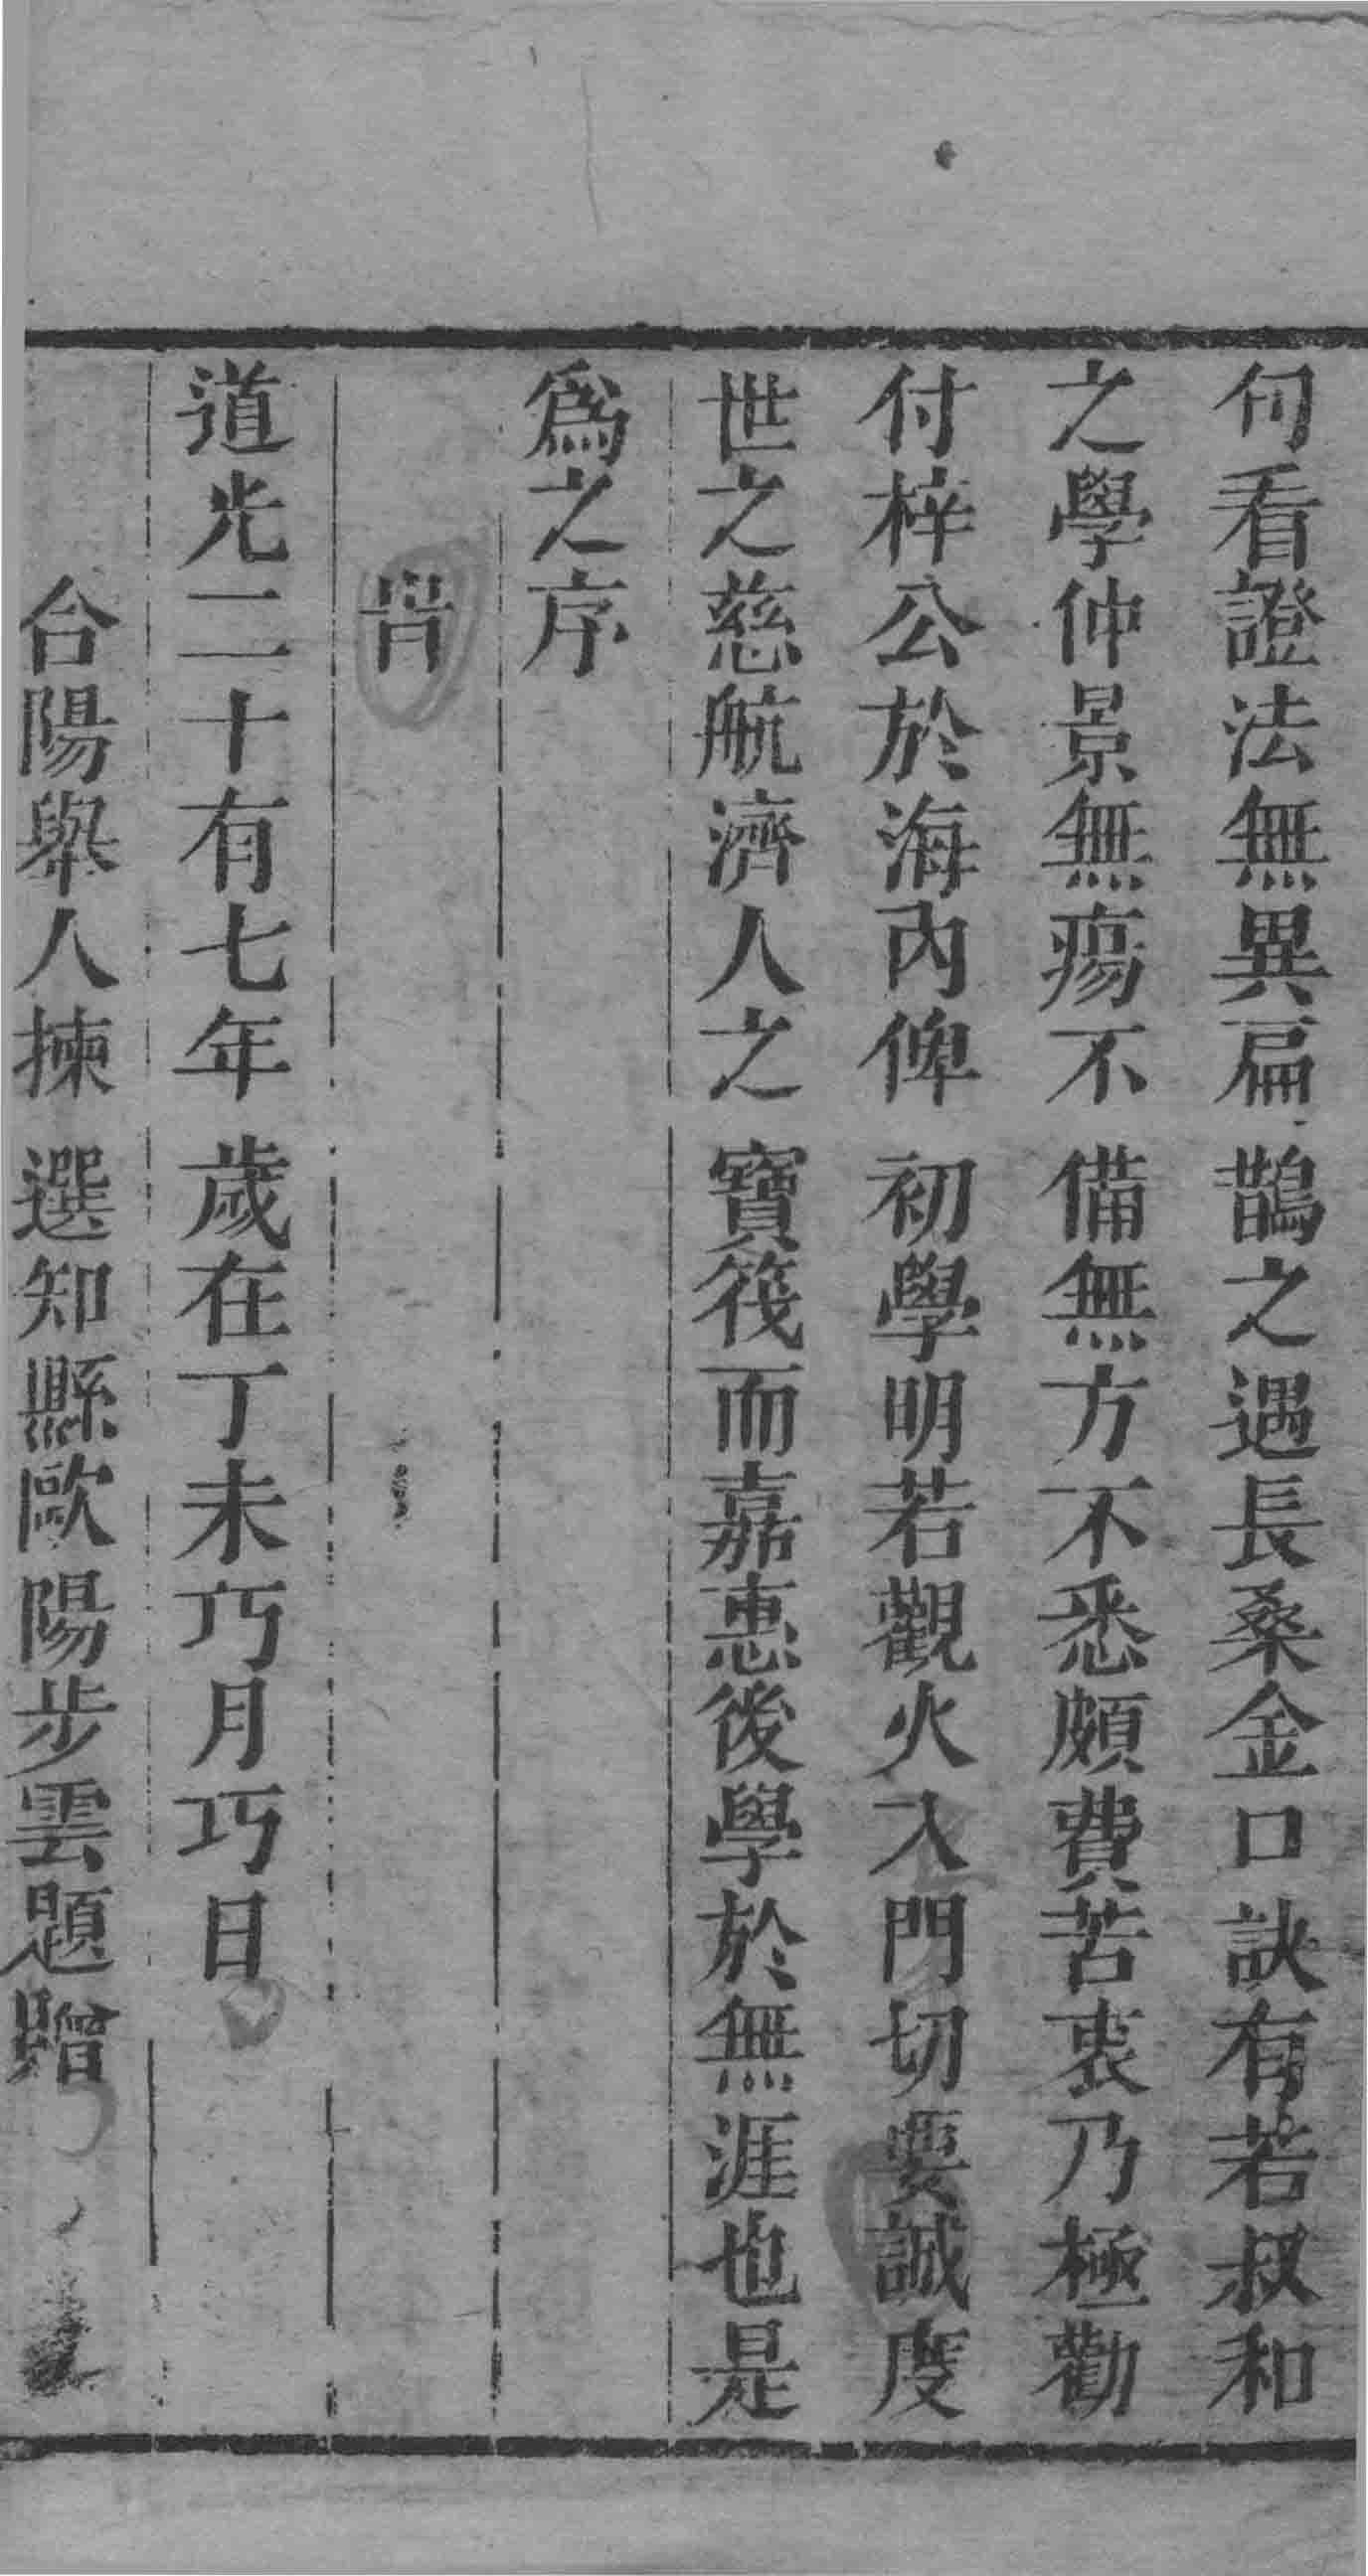 句看證法無異扁鵲之遇長桑金口訣有若叔和
之學仲景無瘍不備無方不悉頗費苦衷乃極勸
付梓公於海內俾初學明若觀火入門切要誠度
世之慈航濟人之寶筏而嘉惠後學於無涯也是
爲之序
旹
道光二十有七年歲在丁未巧月巧日
合陽舉人揀選知縣歐陽步雲題贈